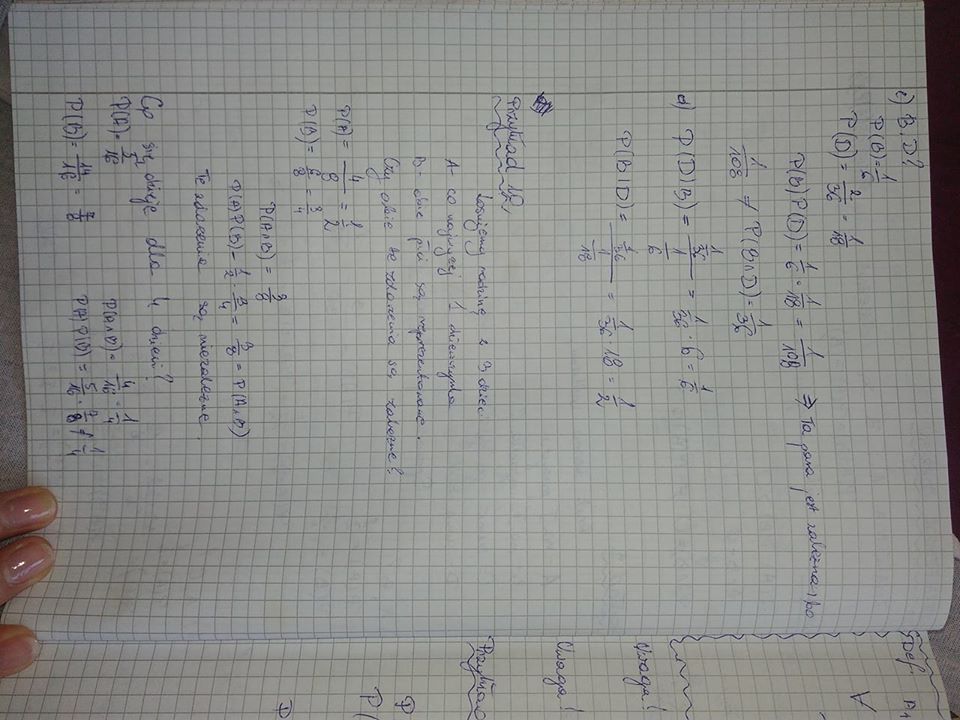 c) B.D?
P(B)=1/6
P(D)= 2/36 = 1/18
P(B)P(D)= 1/6 · 1/18 = 1/108 ⇒ Ta para jest zależna, bo
1/108 ≠ P(B∩D)= 1/36
d) P(D|B)= (1/36)/(1/6) = 1/36 · 6 = 1/6
P(B|D)= (1/36)/(1/18) = 1/36 · 18 = 1/2
Przykład 10.
Losujemy rodzinę z 3 dzieci.
A- co najwyżej 1 dziewczynka
B- obie płci są reprezentowane.
Czy obie te zdarzenia są zależne?
P(A)= 4/8 = 1/2
P(B)= 6/8 = 3/4
P(A∩B) = 3/8
P(A)P(B)= 1/2 · 3/4 = 3/8 = P(A∩B)
Te zdarzenia są niezależne.
Co się dzieje dla 4 dzieci?
P(A)= 5/16
P(A∩B)= 4/16 = 1/4
P(B)= 14/16 = 7/8
P(A)P(B)= 5/16 · 7/8 ≠ 1/4
Def. A1
∀
Uwaga!
Uwaga!
Przykład
P
P(